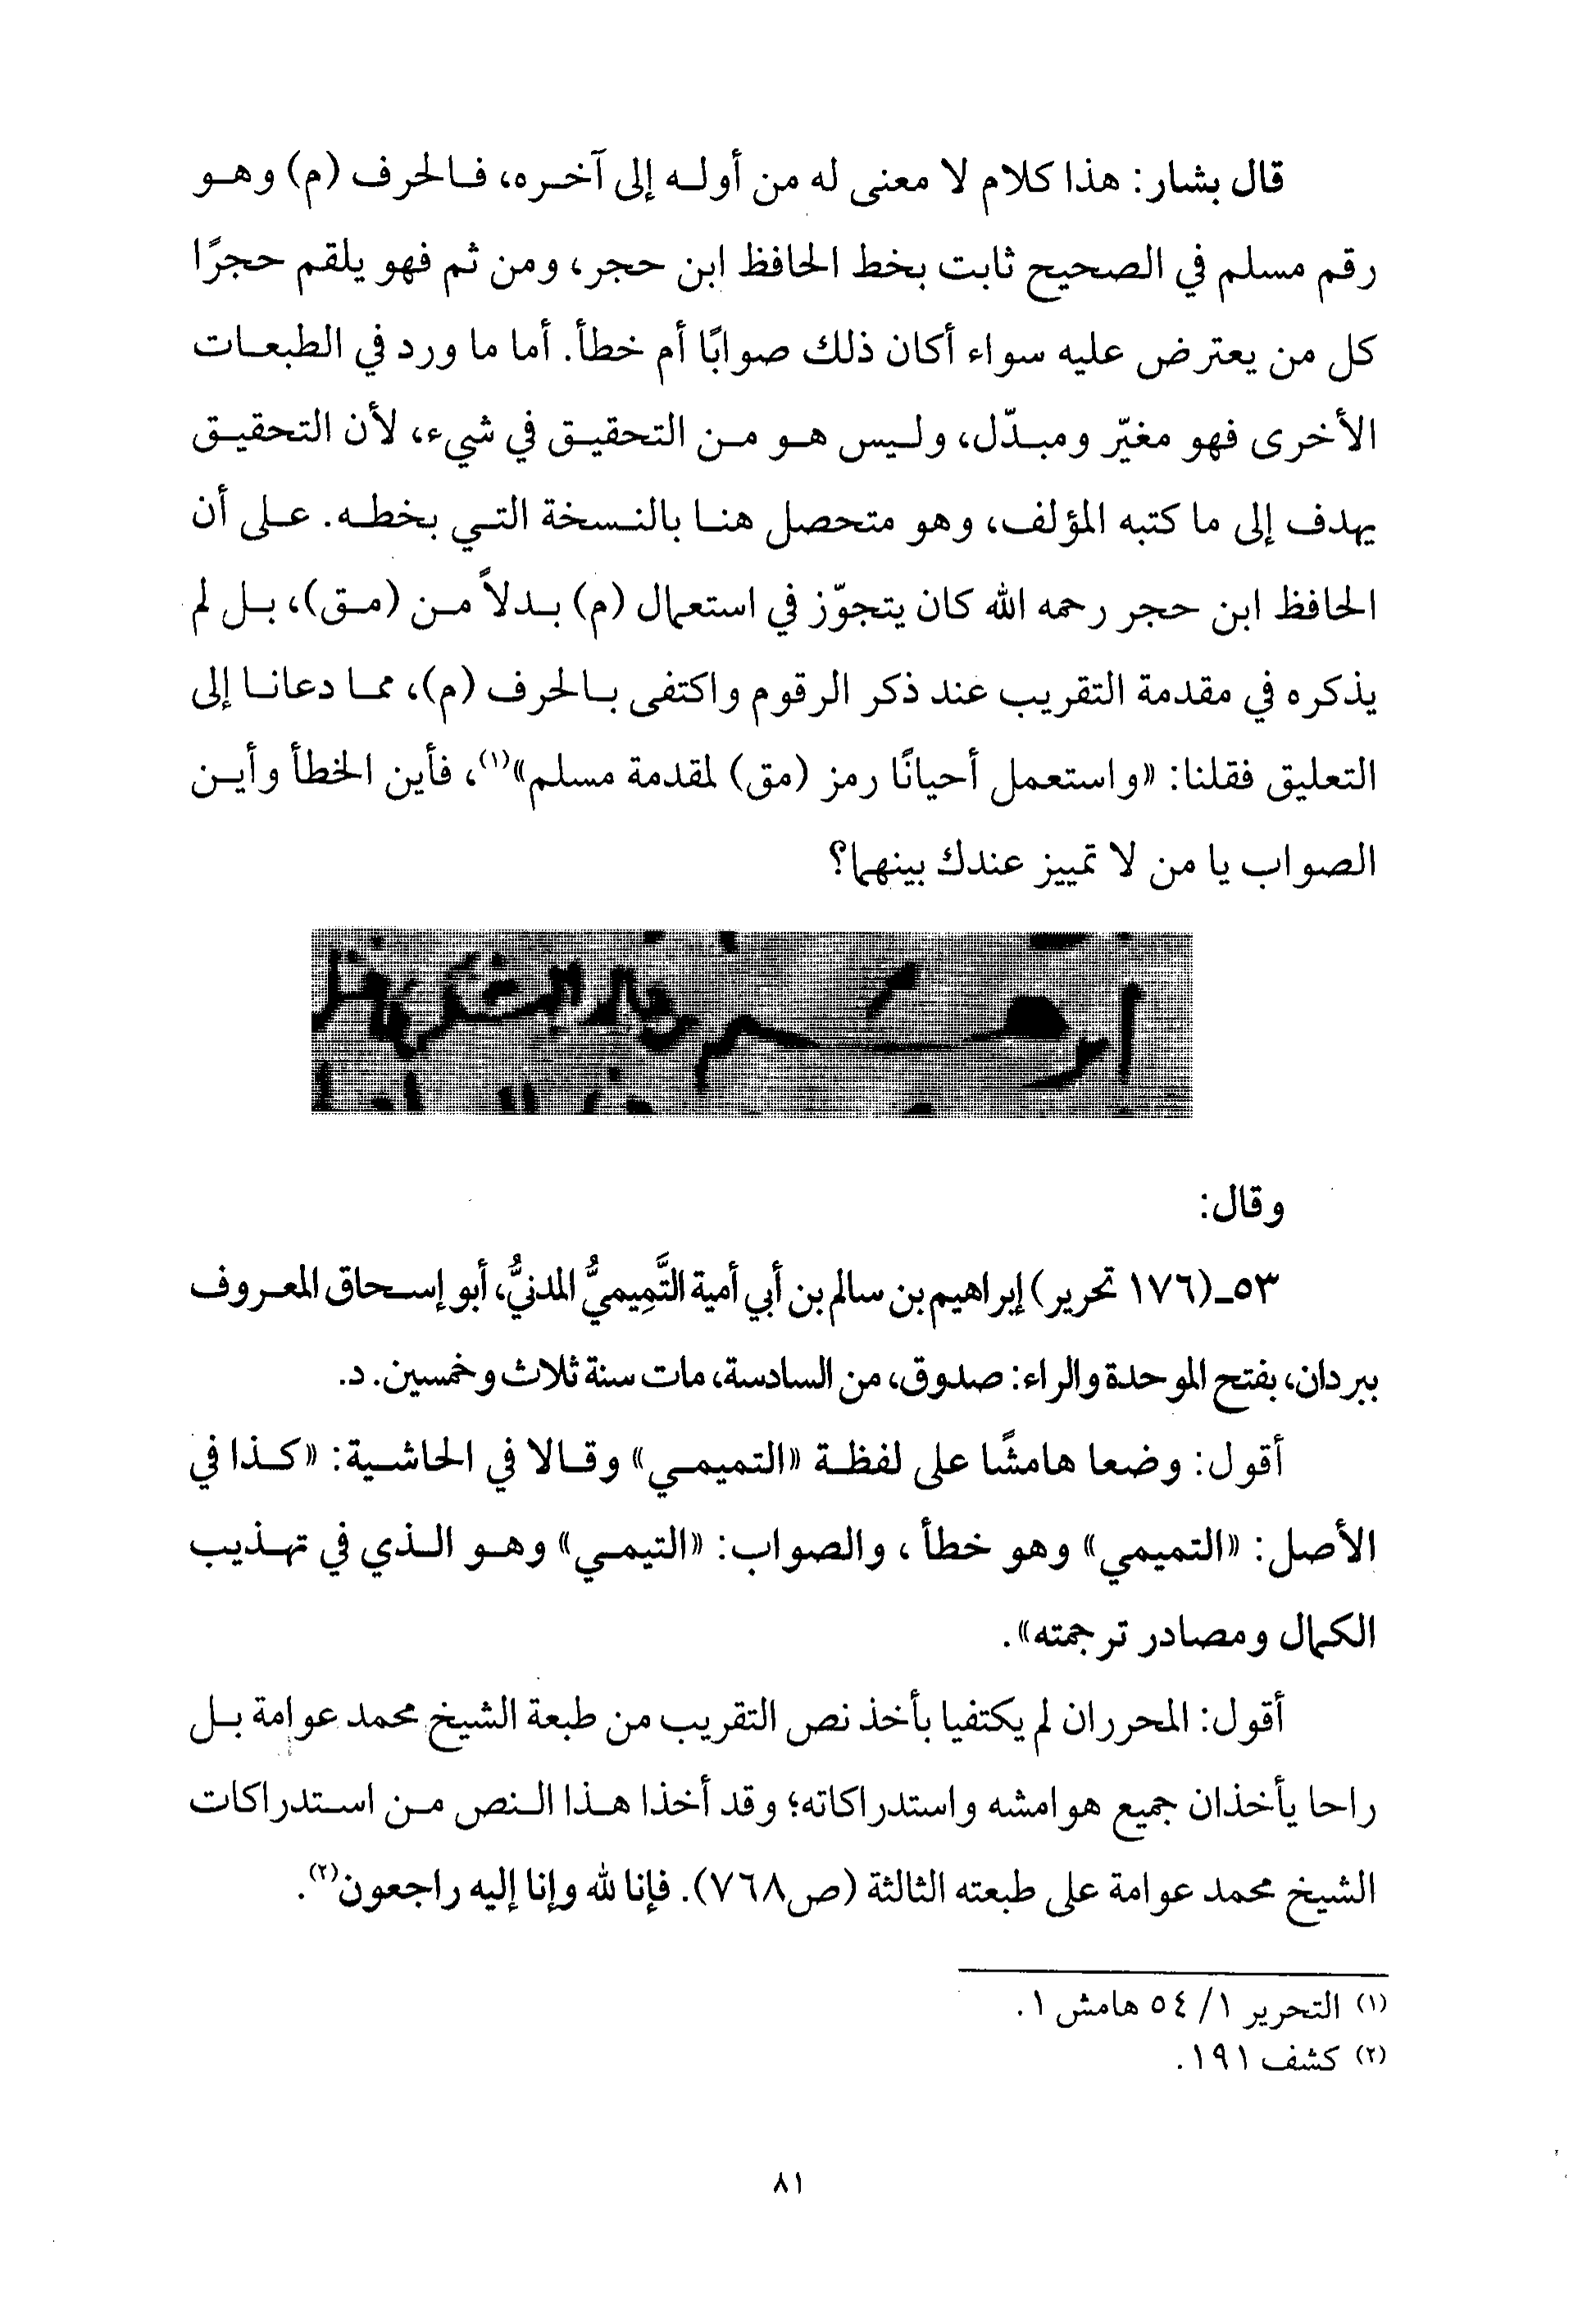 قال بشار: هذا كلام لا معنى له من أوله إلى آخره، فالحرف (م) وهو
رقم مسلم في الصحيح ثابت بخط الحافظ ابن حجر، ومن ثم فهو يلقم حجرًا
كل من يعترض عليه سواء أكان ذلك صوابًا أم خطأ. أما ما ورد في الطبعات
الأخرى فهو مغيّر ومبدّل، وليس هو من التحقيق في شيء، لأن التحقيق
يهدف إلى ما كتبه المؤلف، وهو متحصل هنا بالنسخة التي بخطه. على أن
الحافظ ابن حجر رحمه الله كان يتجوّز في استعمال (م) بدلاً من (مق)، بل لم
يذكره في مقدمة التقريب عند ذكر الرقوم واكتفى بالحرف (م)، مما دعانا إلى
التعليق فقلنا: «واستعمل أحيانًا رمز (مق) لمقدمة مسلم»(١)، فأين الخطأ وأين
الصواب يا من لا تمييز عندك بينهما؟
وقال:
٥٣ـ(١٧٦ تحرير) إبراهيم بن سالم بن أبي أمية التَّمِيميُّ المدنيُّ، أبو إسحاق المعروف
ببردان، بفتح الموحدة والراء: صدوق، من السادسة، مات سنة ثلاث وخمسين. د.
أقول: وضعا هامشًا على لفظة «التميمي» وقالا في الحاشية: «كذا في
الأصل: «التميمي» وهو خطأ ، والصواب: «التيمي» وهو الذي في تهذيب
الكمال ومصادر ترجمته».
أقول: المحرران لم يكتفيا بأخذ نص التقريب من طبعة الشيخ محمد عوامة بل
راحا يأخذان جميع هوامشه واستدراكاته؛ وقد أخذا هذا النص من استدراكات
الشيخ محمد عوامة على طبعته الثالثة (ص٧٦٨). فإنا لله وإنا إليه راجعون(٢).
(١) التحرير ١/ ٥٤ هامش ١.
(٢) كشف ١٩١.
٨١